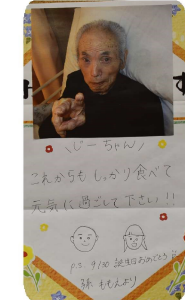 じーちゃん
これからも しっかり食べて
元気に過ごして下さい!!
P.S. 9/30 誕生日おめでとう
孫